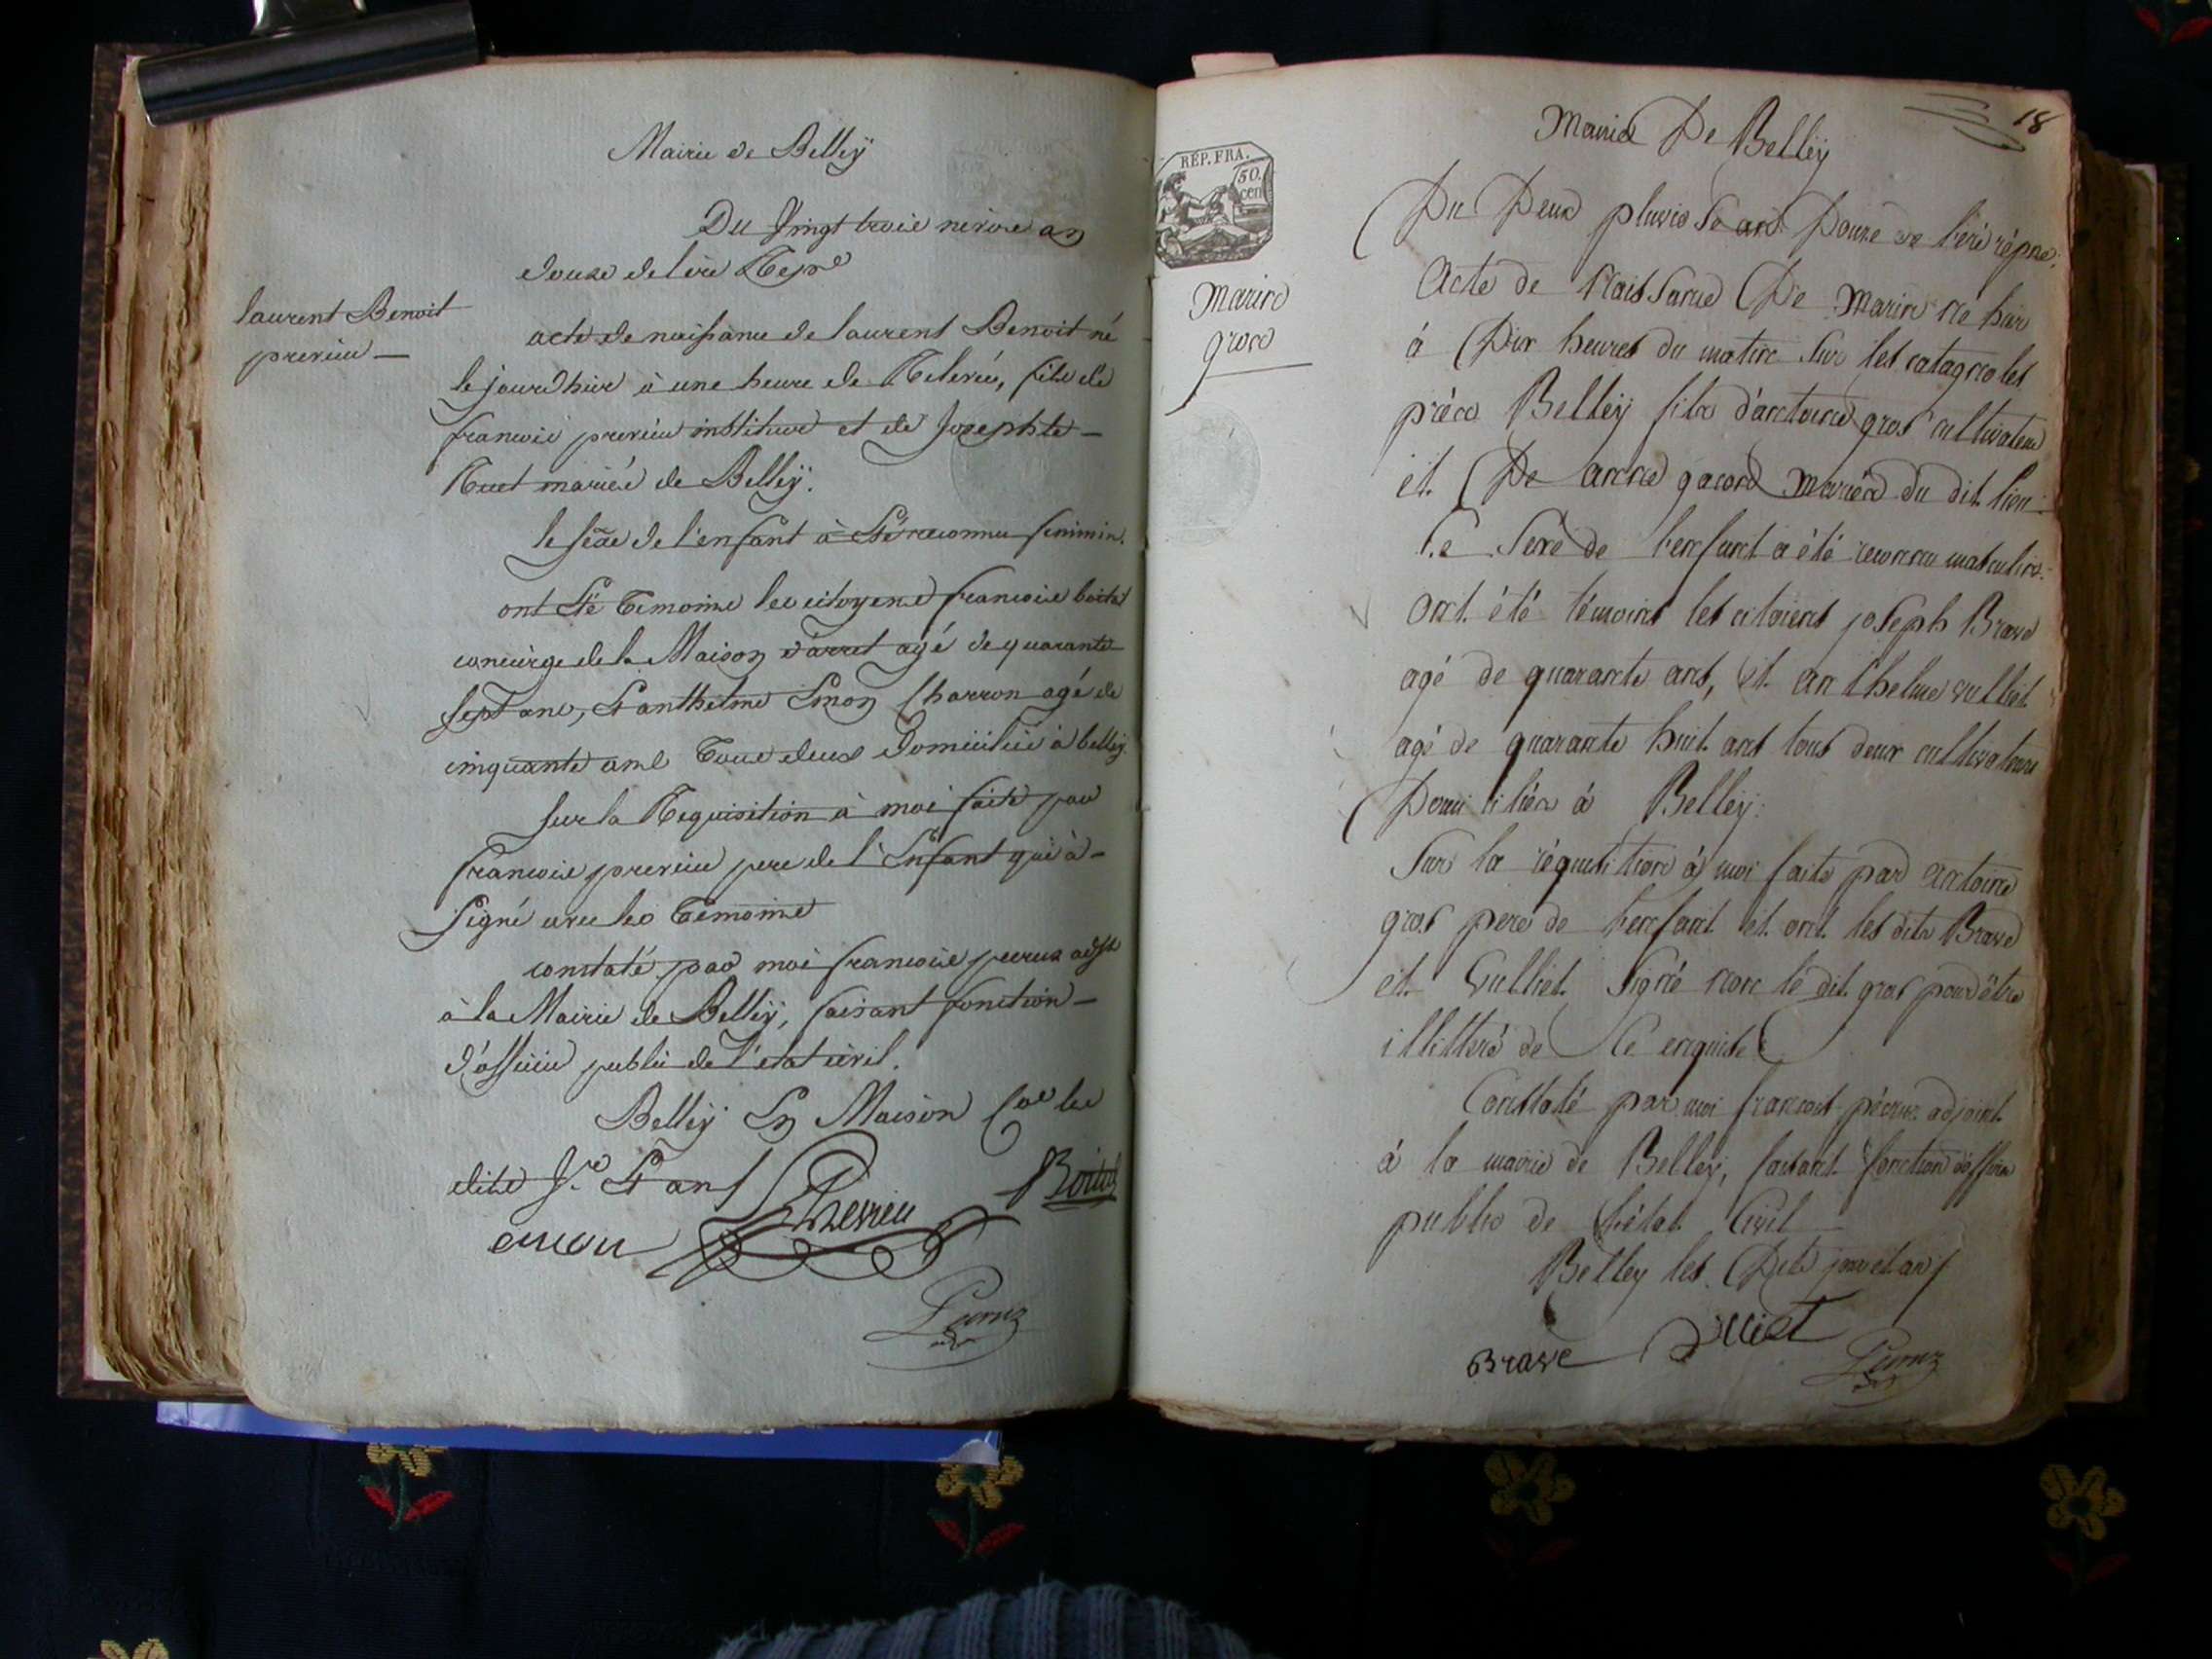 Mairie de Belleÿ
Du Vingt trois nivose an
douze de l'ère Repne
laurent Benoit
prerieu
acte de naissance de laurent Benoit né
le jourdhui à une heure de Relevée, fils de
francois prerieu instituteur et de Josephte
Ruet mariés de Belleÿ.
le sexe de l'enfant à Eté reconnu feminin.
ont Eté Temoins les citoyens francois boitot
concierge de la Maison d'arret agé de quarante
sept ans, Et anthelme Emon Charron agé de
cinquante ans Tous deux domiciliés à belleÿ.
sur la Requisition à moi faite par
francois prerieu pere de l'Enfant qui à
signé avec les Témoins
constaté par moi francois adjt
à la Mairie de Belleÿ, faisant fonction
d'officier public de l'état civil.
Belleÿ En Maison Cne les
dits Jr Et an
Prerieu
Boitot
emon
18
Mairie De Belleÿ
RÉP. FRA.
50.
cen
Marin
gros
Du Deux pluviose an Douze de l'ére répne.
Acte de Naissance De Marin né hier
à Dix heures du matin sur les catagnoles
prés Belleÿ fils d'antoine gros cultivateur
et De anne gacon mariés du dit lieu.
Le Sexe de l'enfant a été reconnu masculin.
ont été témoins les citoiens joseph Brave
agé de quarante ans, et anthelme vulliet
agé de quarante huit ans tous deux cultivateurs
Domiciliés à Belleÿ.
Sur la réquisition à moi faite par antoine
gros pere de l'enfant et ont les dits Brave
et Vulliet Signé non le dit gros pour être
illittéré de ce enquis
Constaté par moi francois adjoint
à la mairie de Belleÿ, faisant fonction d'officier
public de l'état Civil
Belley les Dits jour et an
Brave